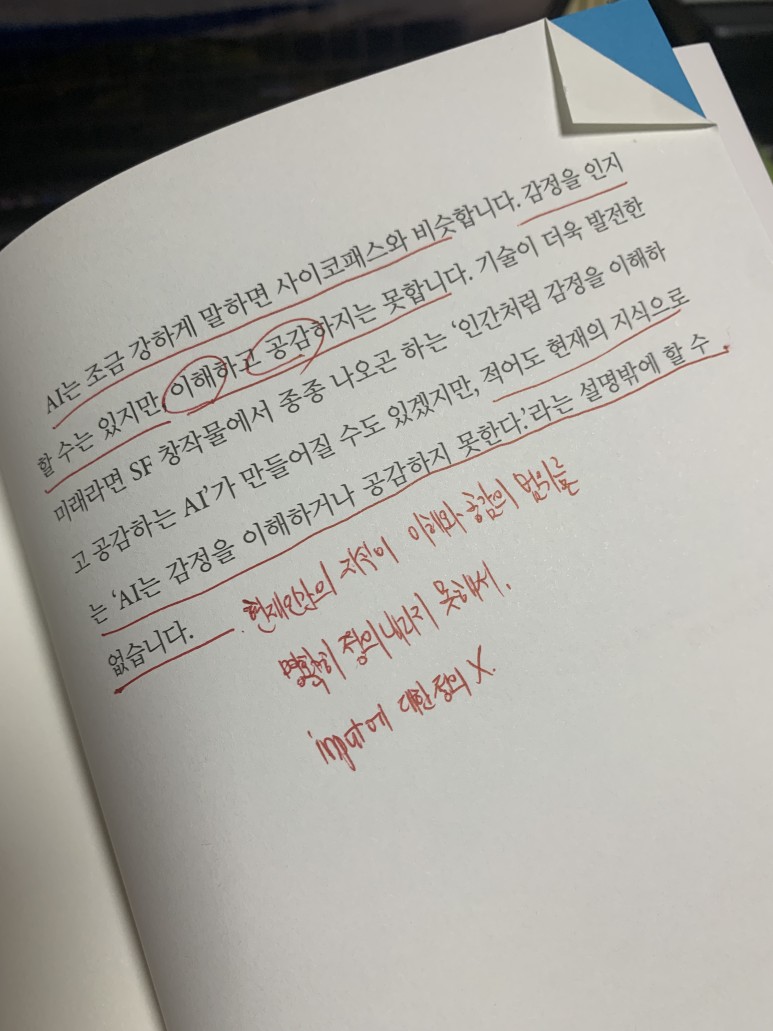 AI는 조금 강하게 말하면 사이코패스와 비슷합니다. 감정을 인지
할 수는 있지만, 이해하고 공감하지는 못합니다. 기술이 더욱 발전한
미래라면 SF 창작물에서 종종 나오곤 하는 ‘인간처럼 감정을 이해하
고 공감하는 AI’가 만들어질 수도 있겠지만, 적어도 현재의 지식으로
는 ‘AI는 감정을 이해하거나 공감하지 못한다.’라는 설명밖에 할 수
없습니다.
현재인간의 지식이 이해와 공감의 범위를
명확히 정의내리지 못해서.
input에 대한 정의 X.